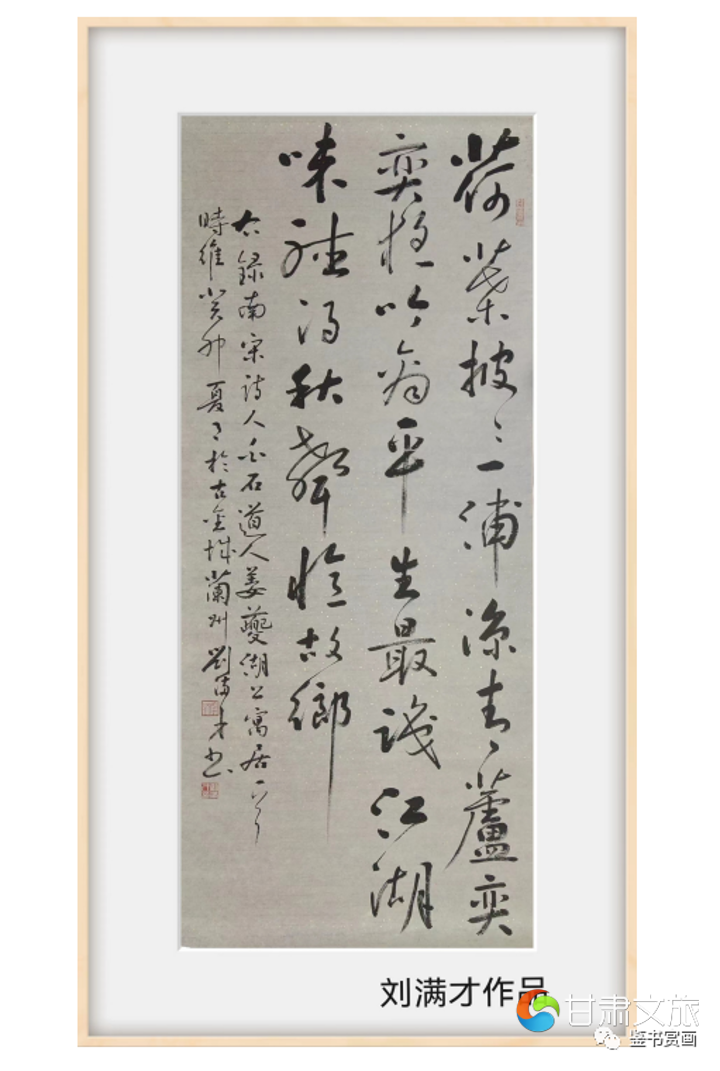 荷葉披〻一浦涼青蘆奕
奕夜吟商平生最識江湖
味聽得秋聲憶故鄉
右錄南宋詩人白石道人姜夔湖上寓居一首
時維癸卯夏月於古金城蘭州劉滿才書
刘满才作品
甘肃文旅
鉴书赏画